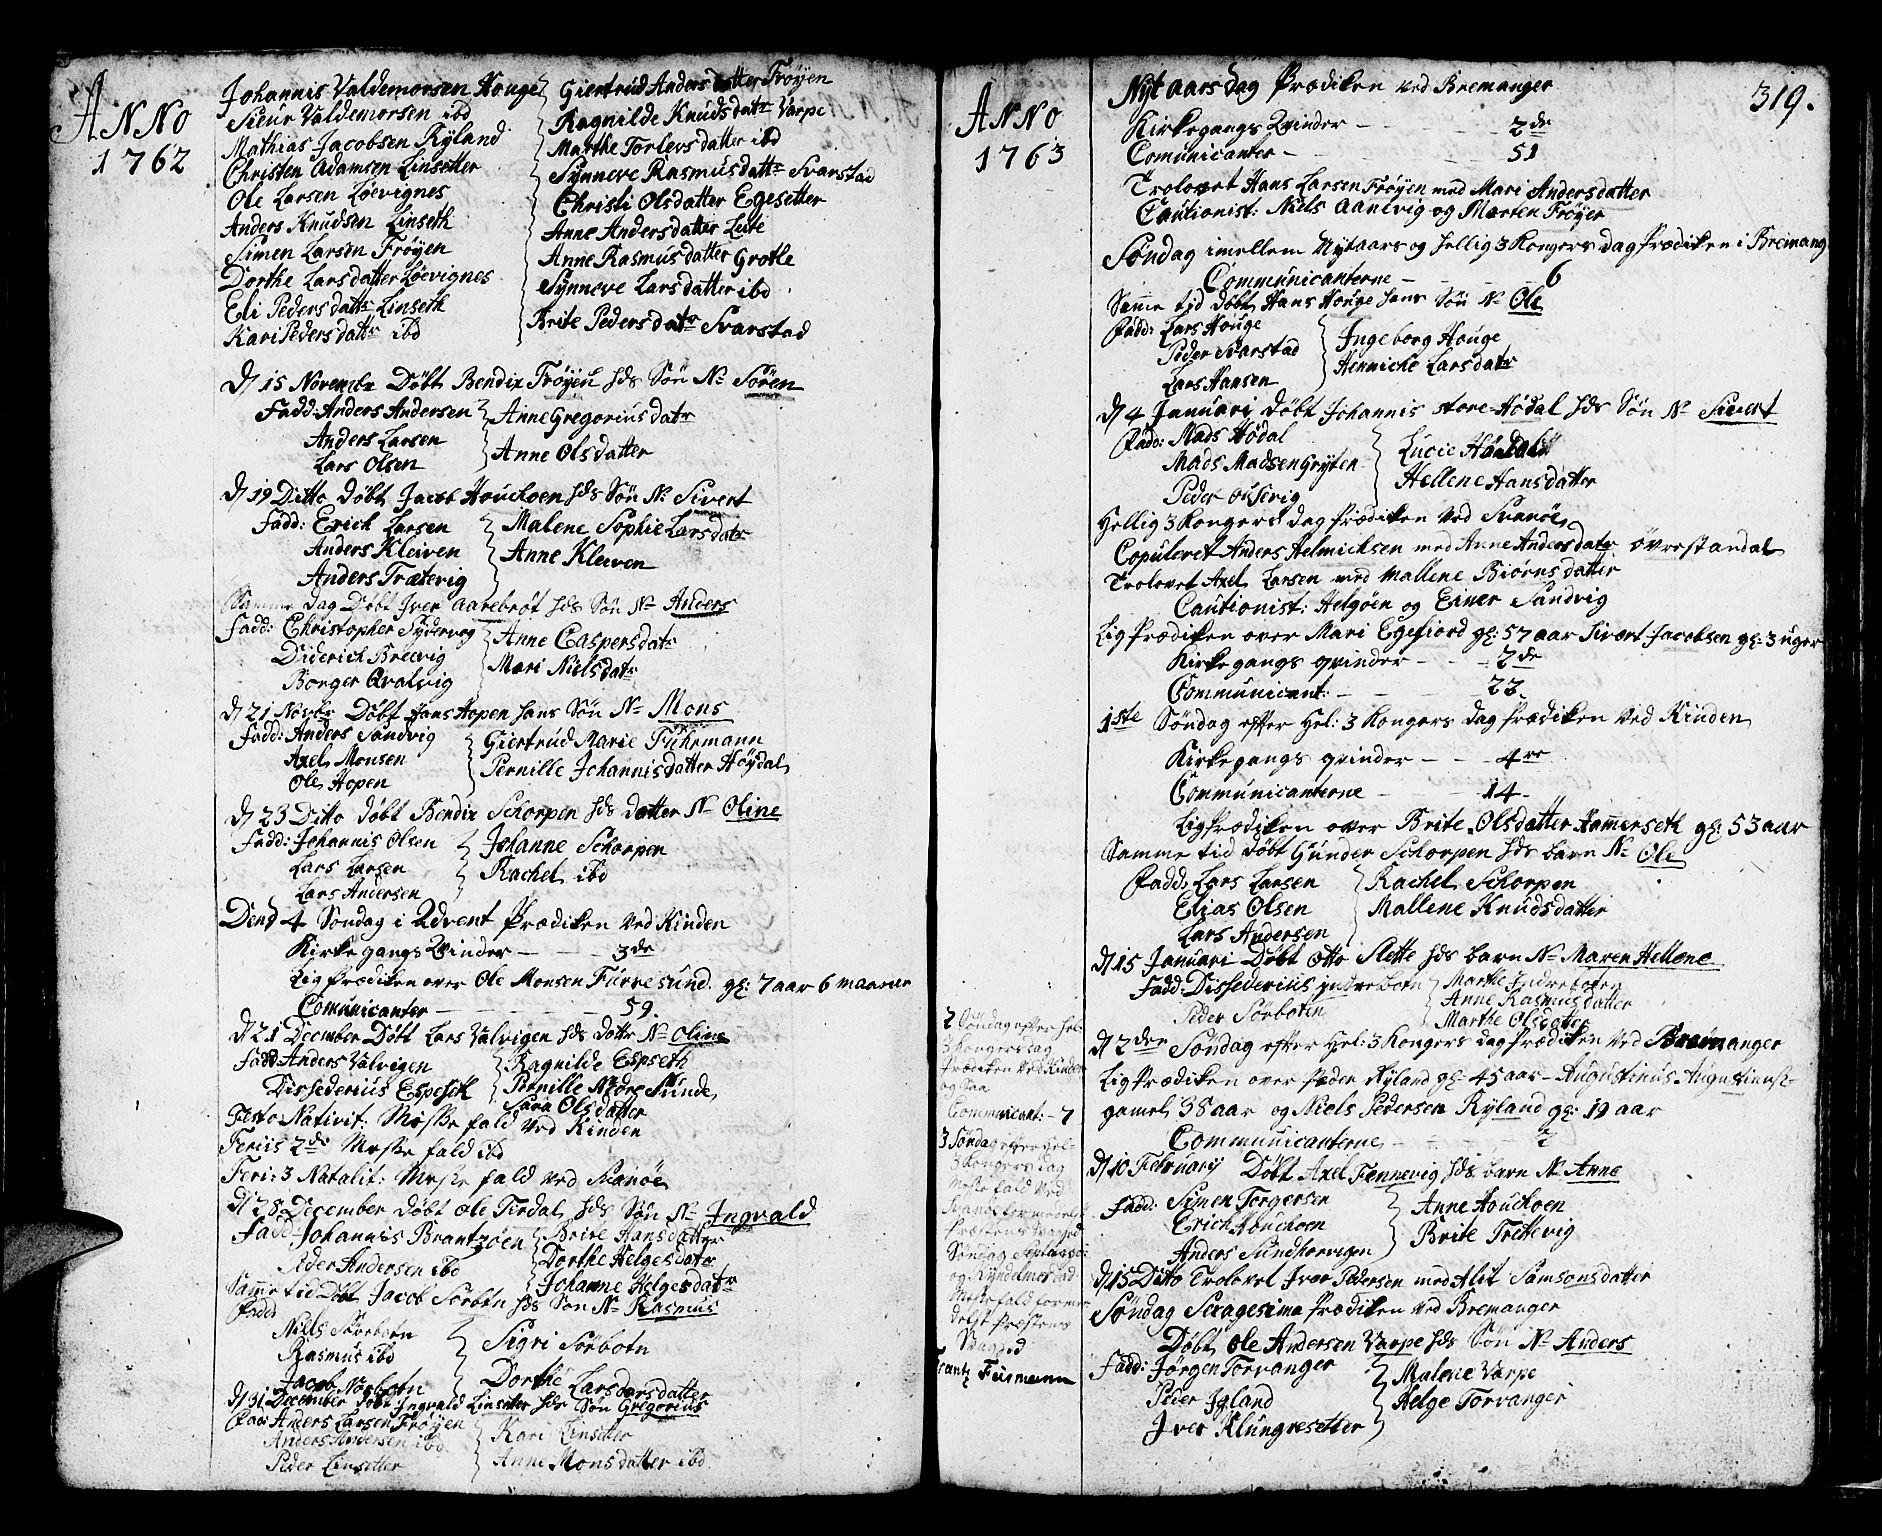 ANNO
1762
Johannis Valdemorsen Houge } Giertrud Andersdatter Frøyen
Sieur Valdemorsen ibd Ragnilde Knudsdatr Varpe
Mathias Jacobsen Ryland Marthe Torlevsdatter ibd
Christen Adamsen Linsetter Synneve Rasmusdattr Svarstad
Ole Larsen Løevignes Christi Olsdatter Egesetter
Anders Knudsen Linseth Anne Andersdatter Lute
Simen Larsen Frøyen Anne Rasmusdatter Grotle
Dorthe Larsdatter Løevignes Synneve Larsdatter ibd
Eli Pedersdattr Linseth Brite Pedersdatr Svarstad
Kari Pedersdattr ibd
D/ 15 Novembr Døbt Bendix Frøyen hds Søn N= Søren
Fadd: Anders Andersen } Anne Gregoriusdatr
Anders Larsen Anne Olsdatter
Lars Olsen
D/ 19 Ditto døbt Jacob Houchoen hds Søn N= Sivert
Fadd: Erich Larsen } Malene Sophie Larsdatr
Anders Kleiven Anne Kleiven
Anders Trætevig
Samme dag Døbt Iver Aarebrot hds Søn N= Anders
Fadd: Christopher Sydervog } Anne Caspersdatr
Diderich Brecvig Mari Nielsdatr
Borger Qvalvig
D/ 21 Novbr Døbt Hans Hopen hans Søn N= Mons
Fadd: Anders Sandvig } Giertrud Marie Fuhrmann
Axel Monsen Pernille Johannisdatter Høydal
Ole Hopen
D/ 23 Ditto døbt Bendix Schorpen hds datter N= Oline
Fadd: Johannis Olsen } Johanne Schorpen
Lars Larsen Rachel ibd
Lars Andersen
Dend 4 Søndag i Advent Prædiken ved Kinden
Kirkegangs Qvinder — 3de
Ligprædiken over Ole Monsen Furresund. gl: 7 aar 6 maaner
Comunicanter — 59.
D/ 21 December Døbt Lars Valvigen hds dattr N= Oline
Fadd Anders Valvigen } Ragnilde Espseth
Dissederius Espeseth Pernille Nedre Sunde
Sara Olsdatter
Festo Nativit: Messe fald ved Kinden
Feriis 2de Messe fald ibd
Feri: 3 Natalit: Messe fald ved Svanøe
D/ 28 December døbt Ole Tirdal hds Søn N= Ingvald
Fadd Johannis Brantzøen } Brite Hansdatter
Peder Andersen ibd Dorthe Helgesdatr
Johanne Helgesdatr
Samme tid Døbt Jacob Sørbotn hds Søn N= Rasmus
Fadd
Niels Sørebotn } Sigri Sørbotn
Rasmus ibd
Jacob Nørbotn Dorthe Larsdatter
D/ 31 December døbt Ingvald Linsetter hds Søn Gregorius
Fad: Anders Larsen Frøyen } Kari Linsetter
Anders Andersen ibd
Peder Linsetter Anne Monsdatter ibd
319.
ANNO
1763
Nyt aars dag Prædiken ved Bremanger
Kirkegangs Qvinder — 2de
Comunicanter — 51
Trolovet Hans Larsen Frøyen med Mari Andersdatter
Cautionist: Niels Aanevig og Morten Frøyer
Søndag imellem Nytaars og hellig 3 Kongers dag Prædiken i Bremang
Communicanterne — 6
Samme tid døbt Hans Houge hans Søn N= Ole
Fadd: Lars Houge } Ingeborg Houge
Peder Svarstad Henniche Larsdatr
Lars Hansen
D/ 4 Januari døbt Johannis store-Hødal hds Søn N= Sivert
Fadd: Mads Hødal } Lucie Høydal
Mads Madsen Gryten Hellene Hansdatter
Peder
Hellig 3 Kongers dag prædiken ved Svanøe
Copuleret Anders Helmichsen med Anne Andersdatr øvrestandal
Trolovet Axel Larsen med Mallene Biørnsdatter
Cautionist: Helgøen og Einer Sandvig
Ligprædiken over Mari Egefiord gl: 57 aar Sivert Jacobsen gl: 3 uger
Kirkegangs qvinder — 2de
Communicant: — 22.
1ste Søndag efter Hel: 3 Kongers dag prædiken ved Kinden
Kirkegangs qvinder — 4re
Communicanterne — 14.
Ligprædiken over Brite Olsdatter Hammerseth gl: 53 aar
Samme tid døbt Gunder Schorpen hds barn N= Ole
Fadd: Lars Larsen } Rachel Schorpen
Elias Olsen Mallene Knudsdatter
Lars Andersen
D/ 15 Januari Døbt Otto Slette hds barn N= Maren Hellene
Fadd: Dissederius yndrebotn } Marthe Indrebotn
Peder Sørbotn Anne Rasmusdatter
Marthe Olsdatter
D/ 2den Søndag efter Hel: 3 Kongers dag prædiken ved Bremanger
Ligprædiken over Peder Ryland gl: 45 aar — Augustinus Augustinus:
gamel 38 aar og Niels Pedersen Ryland gl: 19 aar
Communicanterne — 2
D/ 10 Februarij Døbt Axel Fennevig hds barn N= Anne
Fadd: Simen Torgersen } Anne Houchoen
Erich Houchoen Brite Trettevig
Anders Sundhorvigen
D/ 15 Ditto Trolovet Iver Pedersen med Alit Samsonsdatter
Søndag Sexagesima prædiken ved Bremanger
Døbt Ole Andersen Varpe hds Søn N= Anders
Fadd: Jørgen Torvanger } Malene Varpe
Peder Igland Helge Torvanger
Iver Klungresetter
2 Søndag efter Hel
3 Kongers dag
prædiken ved Kinden
og paa
Communicant: — 7
3 Søndag efter Hel
3 Kongers dag
Messe fald ved
Svanøe formedelst
præstens svaged
Søndag Septuages:
og Kyndelmes dag
Messe fald formedelst
præstens
Svaged
Frantz Feirmann